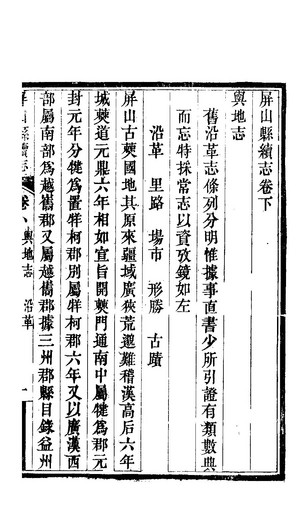 屏山縣續志卷下
輿地志
舊沿革志條列分明惟據事直書少所引證有類數典
而忘特採常志以資攷鏡如左
沿革 里路 場市 形勝 古蹟
屏山古僰國地其原來疆域廣狹荒邈難稽漢高后六年
城僰道元鼎六年相如宣旨開僰門通南中屬犍為郡元
封元年分犍為置牂柯郡別屬牂柯郡六年又以廣漢西
部屬南部為越嶲郡又屬越嶲郡據三州郡縣目錄益州
屏山縣續志
卷下輿地志 沿革
一